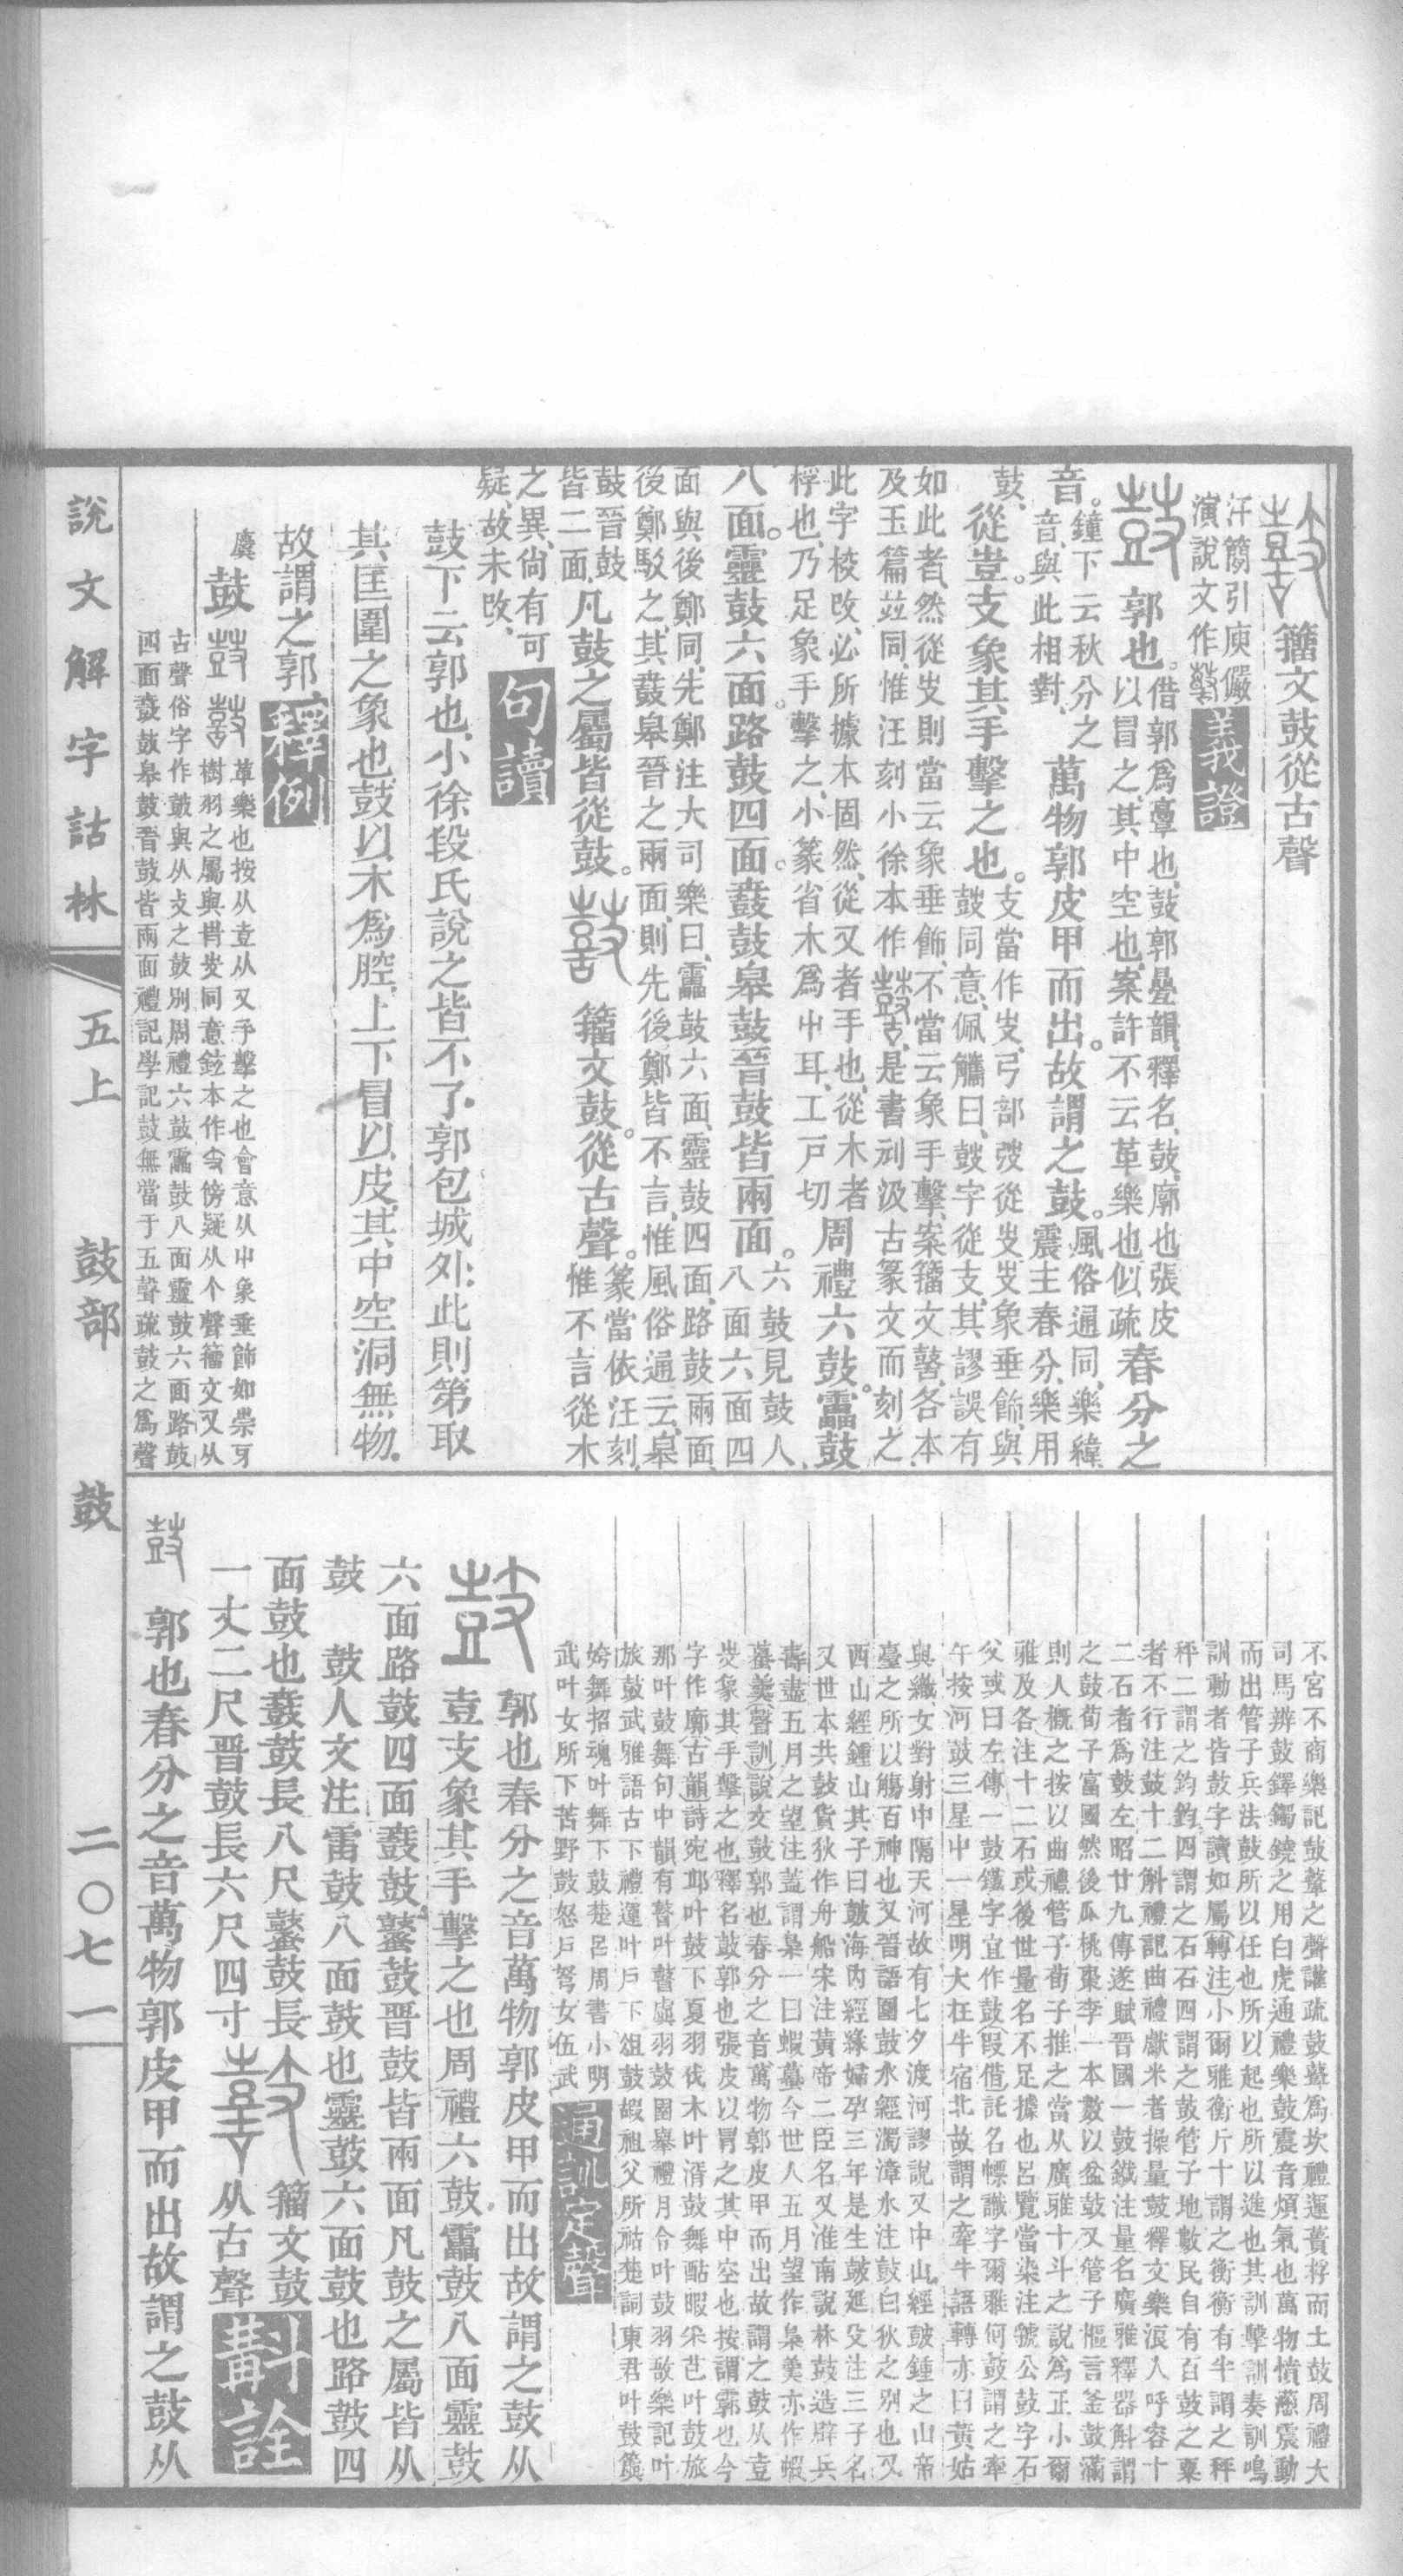 籒文鼓從古聲
汗簡引庾儼
演說文作
義證
郭也。借郭爲𩫖也、鼓郭曡韻、釋名、鼓、廓也、張皮
以冒之、其中空也、案許不云革樂也、似疏春分之
音。鐘下云秋分之
音、與此相對、萬物郭皮甲而出。故謂之鼓。風俗通同、樂緯
震主春分、樂用
鼓、從壴。支象其手擊之也。支當作𡴆、弓部弢從𡴆、𡴆象垂飾、與
鼓同意、佩觿曰、鼓字從支、其謬誤有
如此者、然從𡴆則當云象垂飾、不當云象手擊、案籒文鼛、各本
及玉篇竝同、惟汪刻小徐本作、是書刓汲古篆文而刻之
此字校改、必所據本固然、從又者手也、從木者
桴也、乃足象手擊之、小篆省木爲屮耳、工戸切
周禮六鼓。靁鼓
八面。靈鼓六面。路鼓四面。鼖鼓皋鼓晉鼓皆兩面。六鼓見鼓人、
八面六面四
面與後鄭同、先鄭注大司樂曰、靁鼓六面、靈鼓四面、路鼓兩面、
後鄭駮之、其鼖皋晉之兩面、則先後鄭皆不言、惟風俗通云、皋
鼓晉鼓
皆二面、凡鼓之屬皆從鼓。
籒文鼓。從古聲。篆當依汪刻、
惟不言從木
之異、尙有可
疑、故未改、
句讀
鼓下云郭也、小徐段氏說之皆不了、郭包城外、此則第取
其匡圍之象也、鼓以木爲腔、上下冒以皮、其中空洞無物、
故謂之郭、
釋例
鼓
革樂也按从壴从又手擊之也會意从屮象垂飾如崇牙
樹羽之屬與同意鉉本作支傍疑从个聲籒文又从
古聲俗字作皷與从攴之鼓別周禮六鼓靁鼓八面靈鼓六面路鼓
四面鼖鼓皋鼓晉鼓皆兩面禮記學記鼓無當于五聲疏鼓之爲聲
說文解字詁林
五上
鼓部
鼓
二〇七一
不宮不商樂記鼓鼙之聲讙疏鼓鼙爲坎禮運蕢桴而土鼓周禮大
司馬辨鼓鐸鐲鐃之用白虎通禮樂鼓震音煩氣也萬物憤懣震動
而出管子兵法鼓所以任也所以起也所以進也其訓擊訓奏訓鳴
訓動者皆鼓字讀如屬轉注小爾雅衡斤十謂之衡衡有半謂之秤
秤二謂之鈞鈞四謂之石石四謂之鼓管子地數民自有百鼓之粟
者不行注鼓十二斛禮記曲禮獻米者操量鼓釋文樂浪人呼容十
二石者爲鼓左昭廿九傳遂賦晉國一鼓鐵注量名廣雅釋器斛謂
之鼓荀子富國然後瓜桃棗李一本數以盆鼓又管子樞言釜鼓滿
則人概之按以曲禮管子荀子推之當从廣雅十斗之說爲正小爾
雅及各注十二石或後世量名不足據也呂覽當染注號公鼓字石
父或曰左傳一鼓鐵字宜作鼓叚借託名幖識字爾雅何鼓謂之牽
午按河鼓三星中一星明大在牛宿北故謂之牽牛語轉亦曰黃姑
與織女對射中隔天河故有七夕渡河謬說又中山經鼓鍾之山帝
臺之所以觴百神也又晉語圍鼓水經濁漳水注鼓白狄之別也又
西山經鍾山其子曰鼓海內經緣婦孕三年是生鼓延殳注三子名
又世本共鼓貨狄作舟船宋注黃帝二臣名又淮南說林鼓造辟兵
壽盡五月之望注蓋謂梟一曰蝦蟇今世人五月望作梟羹亦作蝦
蟇羹聲訓說文鼓郭也春分之音萬物郭皮甲而出故謂之鼓从壴
象其手擊之也釋名鼓郭也張皮以冒之其中空也按謂霩也今
字作廓古韻詩宛邱叶鼓下夏羽伐木叶湑鼓舞酤暇采芑叶鼓旅
那叶鼓舞句中韻有瞽叶瞽虡羽鼓圉舉禮月令叶鼓羽歌樂記叶
旅鼓武雅語古下禮運叶戶下俎鼓嘏祖父所祜楚詞東君叶鼓簴
姱舞招魂叶舞下鼓楚呂周書小明
武叶女所下苦野鼓怒戶弩女伍武
通訓定聲
郭也春分之音萬物郭皮甲而出故謂之鼓从
壴支象其手擊之也周禮六鼓靁鼓八面靈鼓
六面路鼓四面鼖鼓鼛鼓晋鼓皆兩面凡鼓之屬皆从
鼓 鼓人文注雷鼓八面鼓也靈鼓六面鼓也路鼓四
面鼓也鼖鼓長八尺鼛鼓長
一丈二尺晋鼓長六尺四寸
籒文鼓
从古聲
斠詮
郭也春分之音萬物郭皮甲而出故謂之鼓从